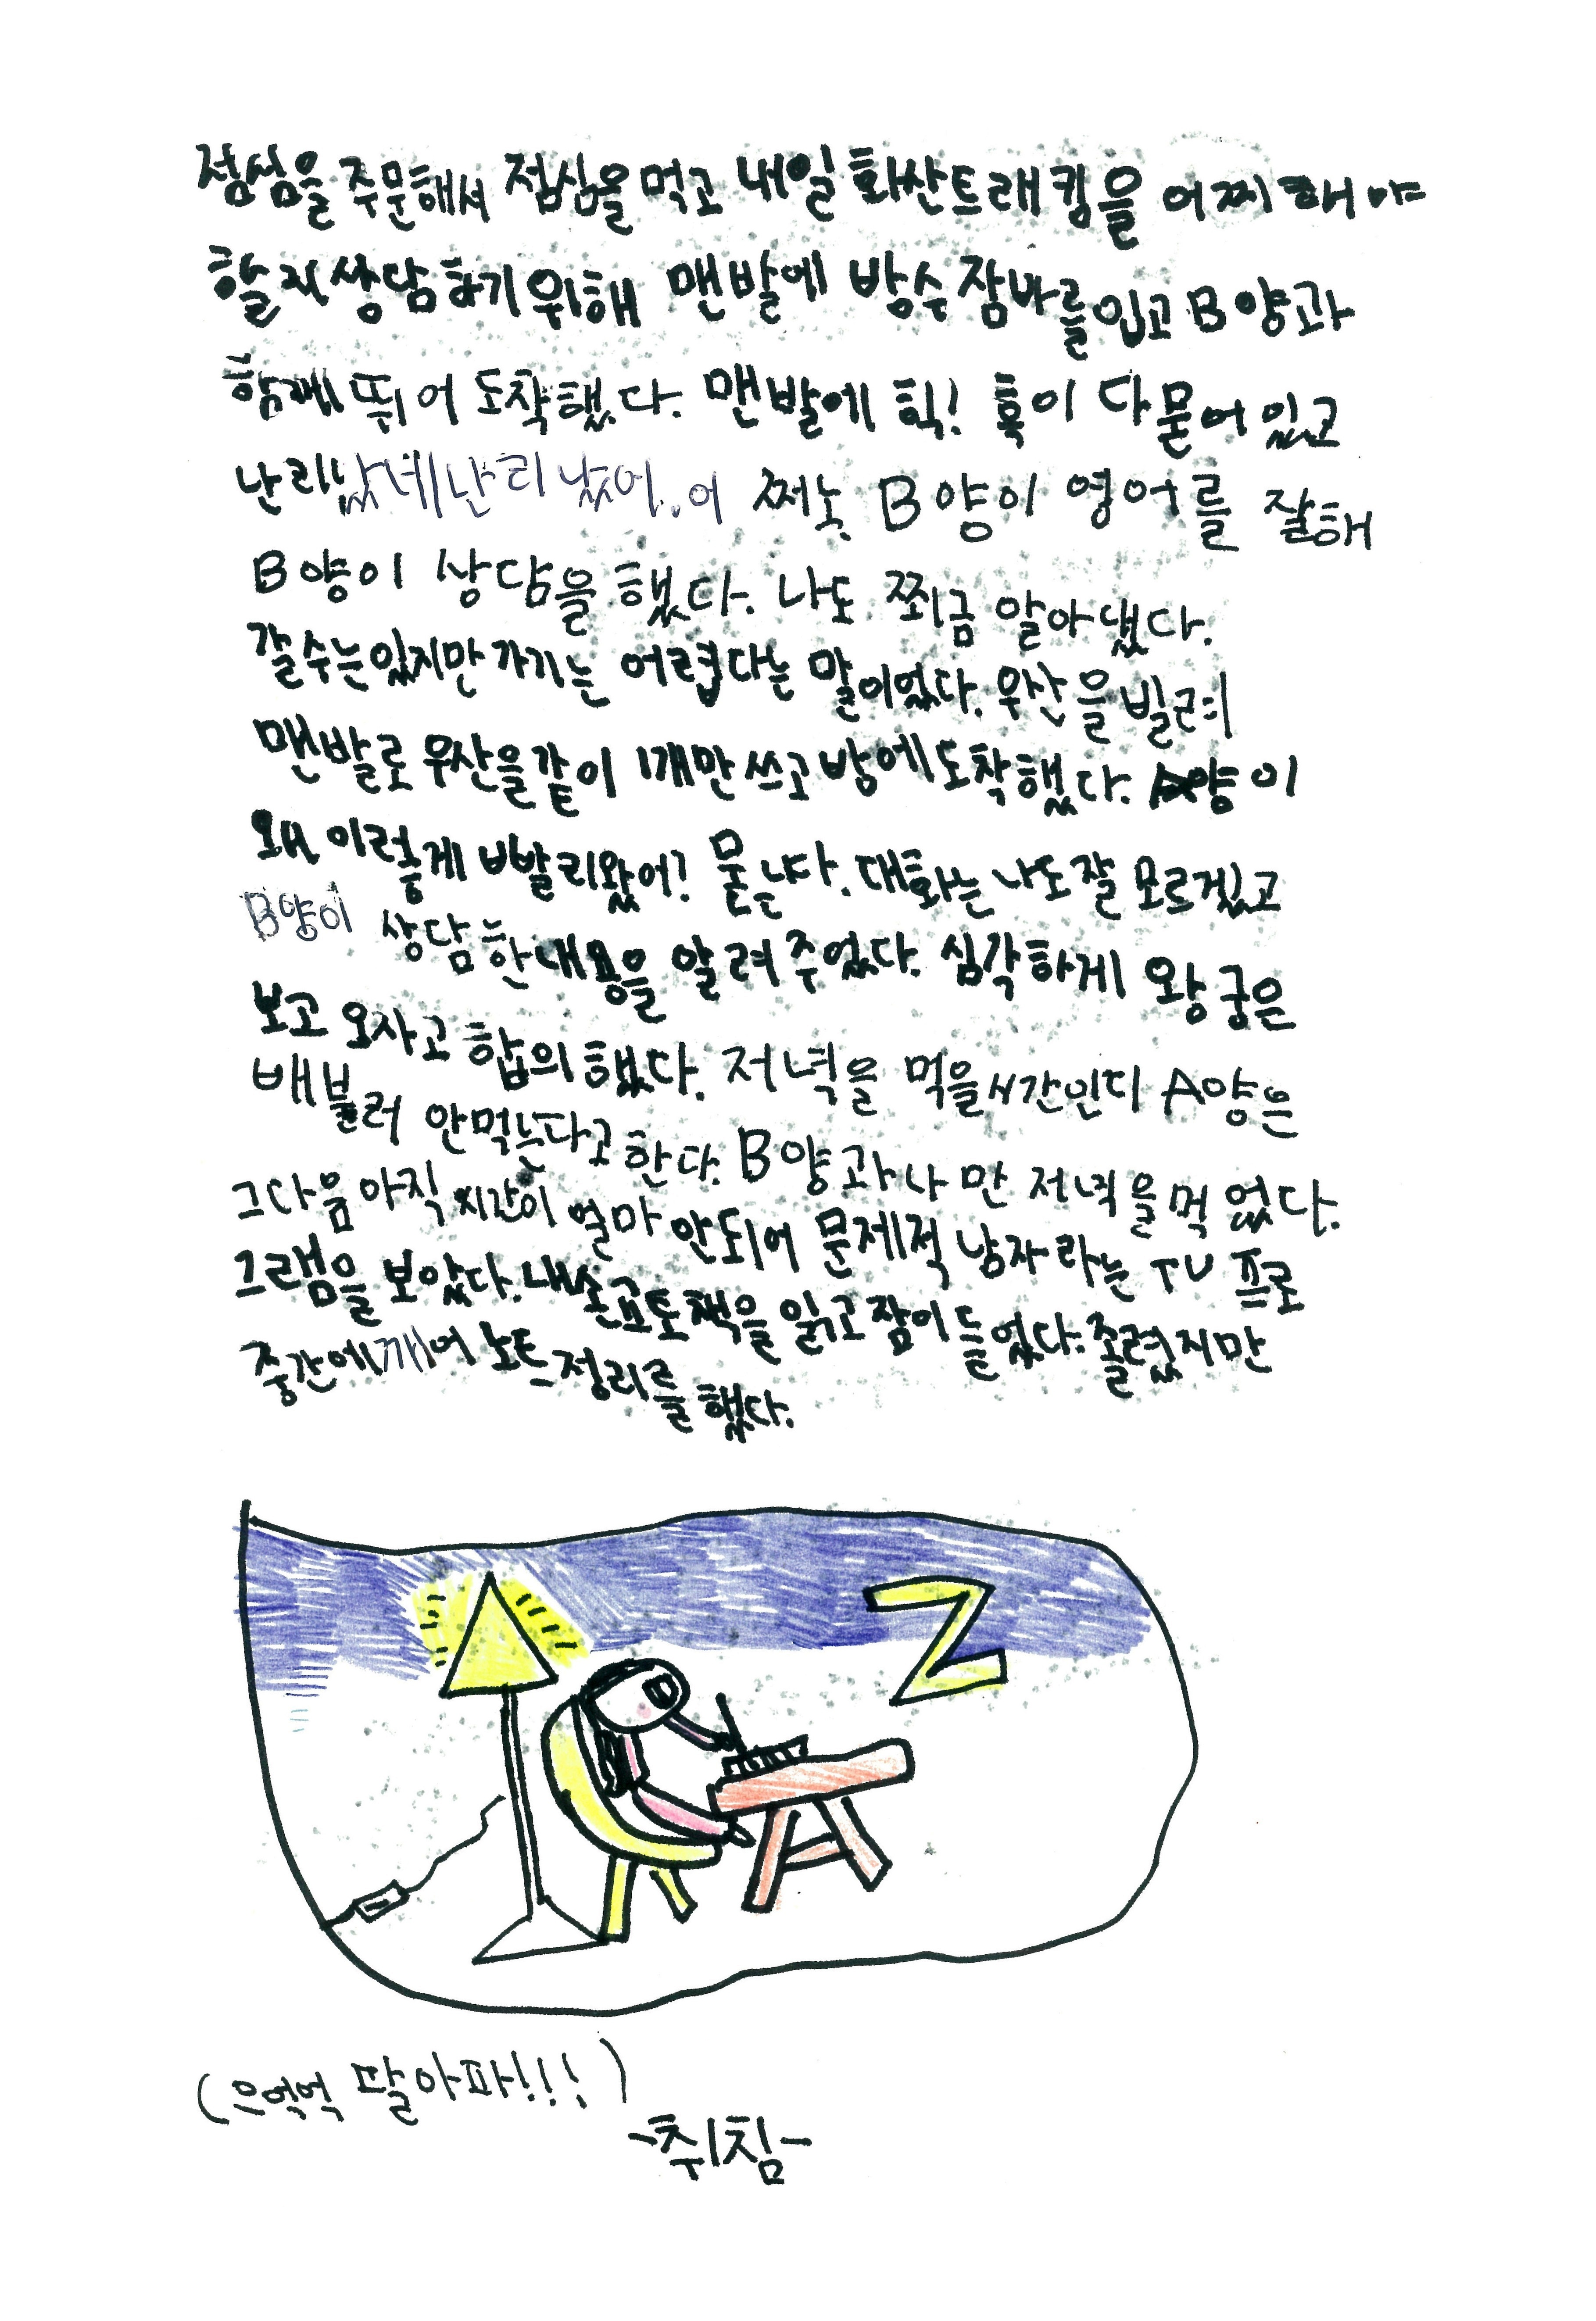 점심을 주문해서 점심을 먹고 내일 화산트래킹을 어찌해야
할지 상담하기 위해 맨발에 방수잠바를 입고 B양과
함께 뛰어 도착했다. 맨발에 힉! 흙이 다 묻어 있고
난리났네 난리났어. 어쩌노 B양이 영어를 잘해
B양이 상담을 했다. 나도 쬐금 알아냈다.
갈수는있지만 가기는 어렵다는 말이었다. 우산을 빌려
맨발로 우산을 같이 1개만 쓰고 방에 도착했다. A양이
왜 이렇게 빨리왔어? 묻는다. 대화는 나도 잘 모르겠고
B양이 상담한 내용을 알려 주었다. 심각하게 왕궁은
보고 오자고 합의했다. 저녁을 먹을시간인디 A양은
배불러 안먹는다고 한다. B양과 나만 저녁을 먹었다.
그다음 아직 시간이 얼마 안되어 문제적 남자라는 TV 프로
그램을 보았다. 내 책을 읽고 잠이 들었다. 졸렸지만
중간에 깨어 노트정리를 했다.
Z
(으억억 팔아파!!!)
-취침-